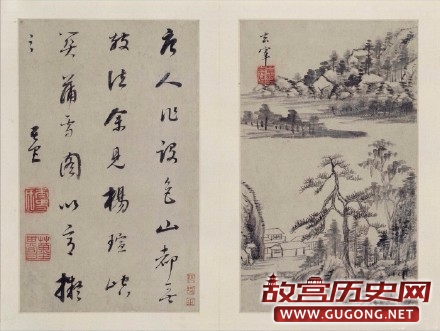 唐人作設色山都無
皴法余見楊昇峒
關蒲雪圖以意擬
之 玄宰
玄宰
故宫历史网
WWW.GUGONG.NET